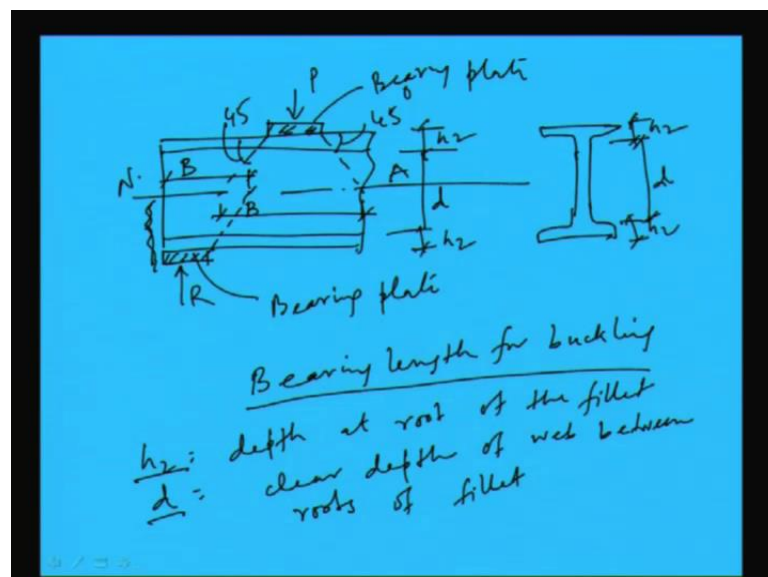 P
Bearing plate
45
45
h2
h2
B
N.
A
d
d
B
h2
h2
R
Bearing plate
Bearing length for buckling
h2 = depth at root of the fillet
d = clear depth of web between
roots of fillet